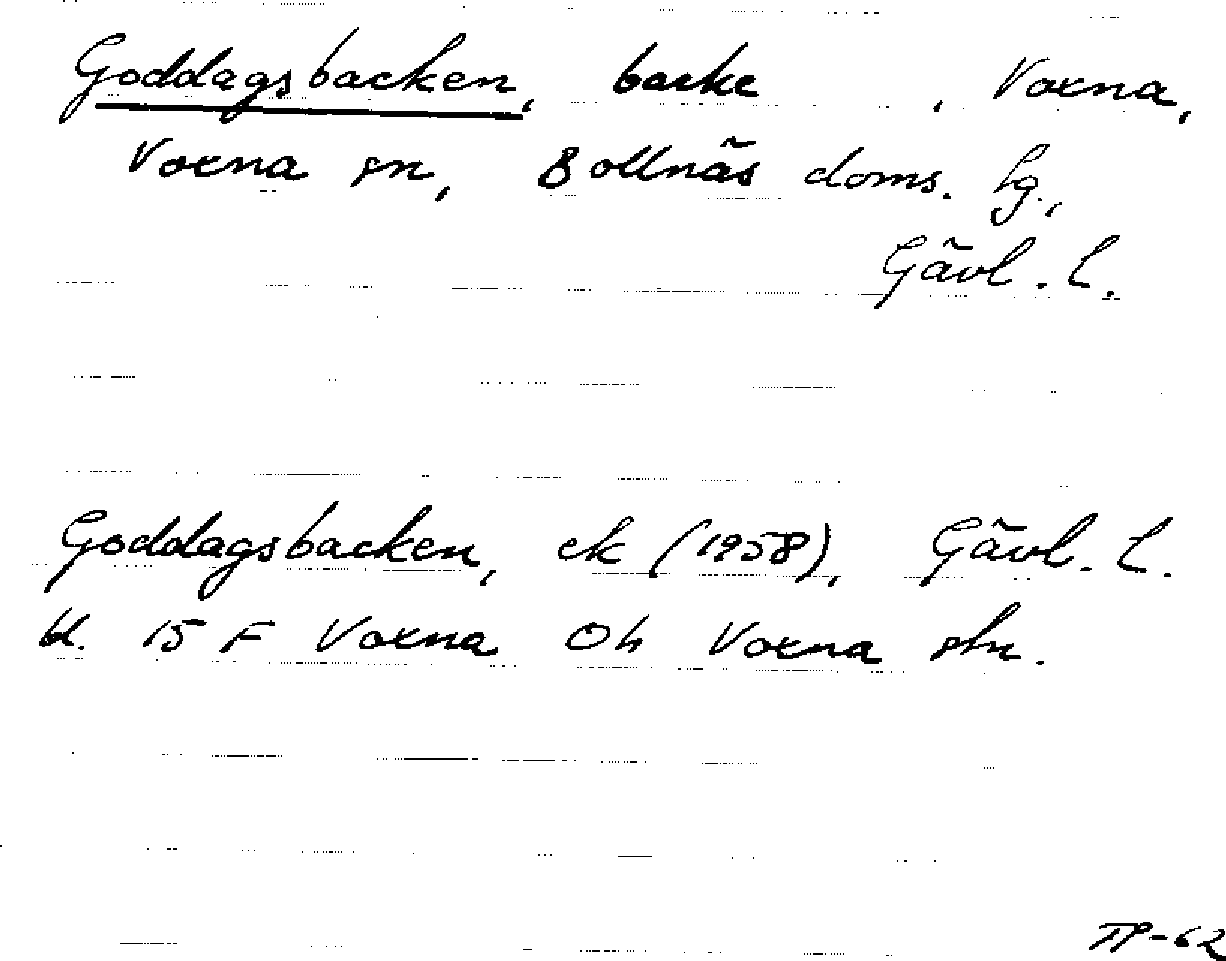 Goddagsbacken, backe , Voxna,
Voxna sn, Bollnäs doms. lg.,
Gävl. l.
Goddagsbacken, ek (1958), Gävl. l.
bl. 15 F Voxna Oh Voxna skn.
TP-62